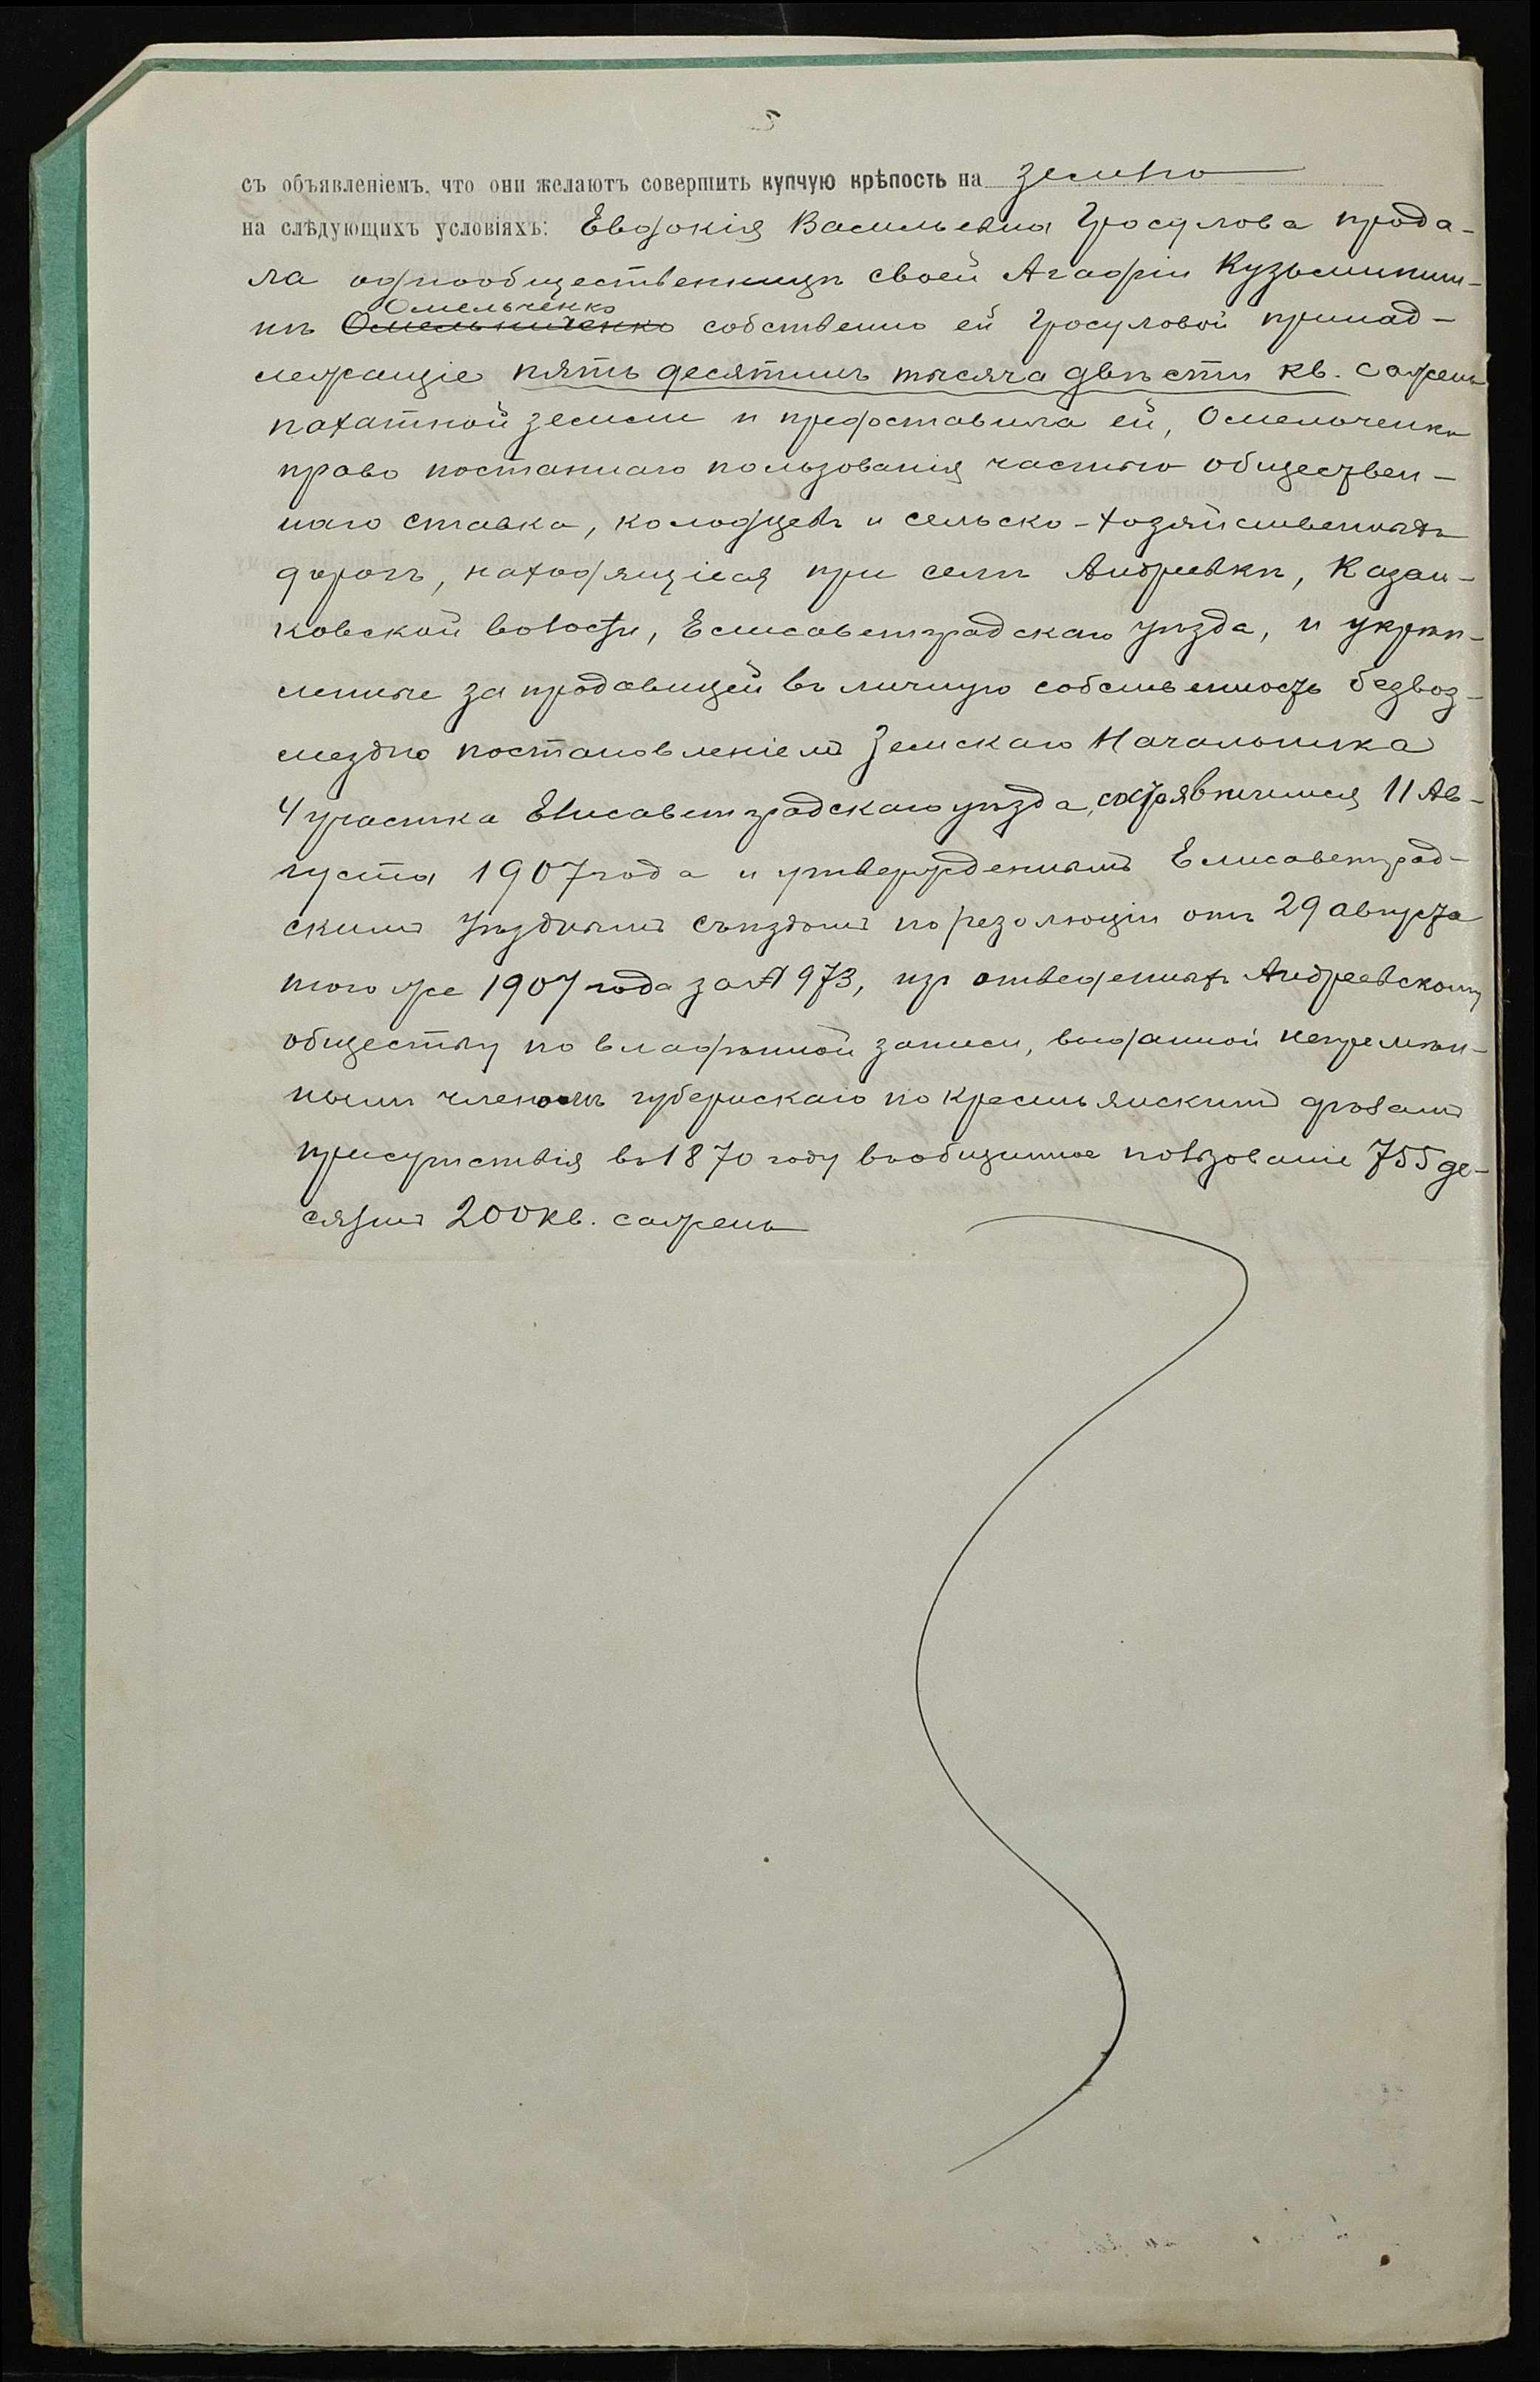 съ объявленіемъ, что они желаютъ совершить купчую крѣпость на землю
на слѣдующихъ условіяхъ: Евдокія Васильевна Гросулова прода-
ла однообщественницѣ своей Агафіи Кузьминиш-
нѣ Омельниченко Омельченко собственно ей Гросуловой принад-
лежащіе пять десятинъ тысяча двѣсти кв. сажень
пахатной земли и предоставила ей, Омельченко
право постояннаго пользованія частью обществен-
наго ставка, колодцевъ и сельско-хозяйственныхъ
дорогъ, находящіеся при селѣ Андреевкѣ, Казан-
ковской волости, Елисаветградскаго уѣзда, и укрѣп-
ленные за продавицей въ личную собственность безвоз-
мездно постановленіемъ Земскаго Начальника
4 участка Елисаветградскаго уѣзда, состоявшимся 11 Ав-
густа 1907 года и утвержденнымъ Елисаветград-
скимъ Уѣзднымъ съѣздомъ по резолюціи отъ 29 августа
того же 1907 года за № 973, изъ отведенныхъ Андреевскому
обществу по владѣнной записи, выданной непремѣн-
нымъ членомъ губернскаго по крестьянскимъ дѣламъ
присутствія въ 1870 году въ общинное пользованіе 755 де-
сятинъ 200 кв. сажень